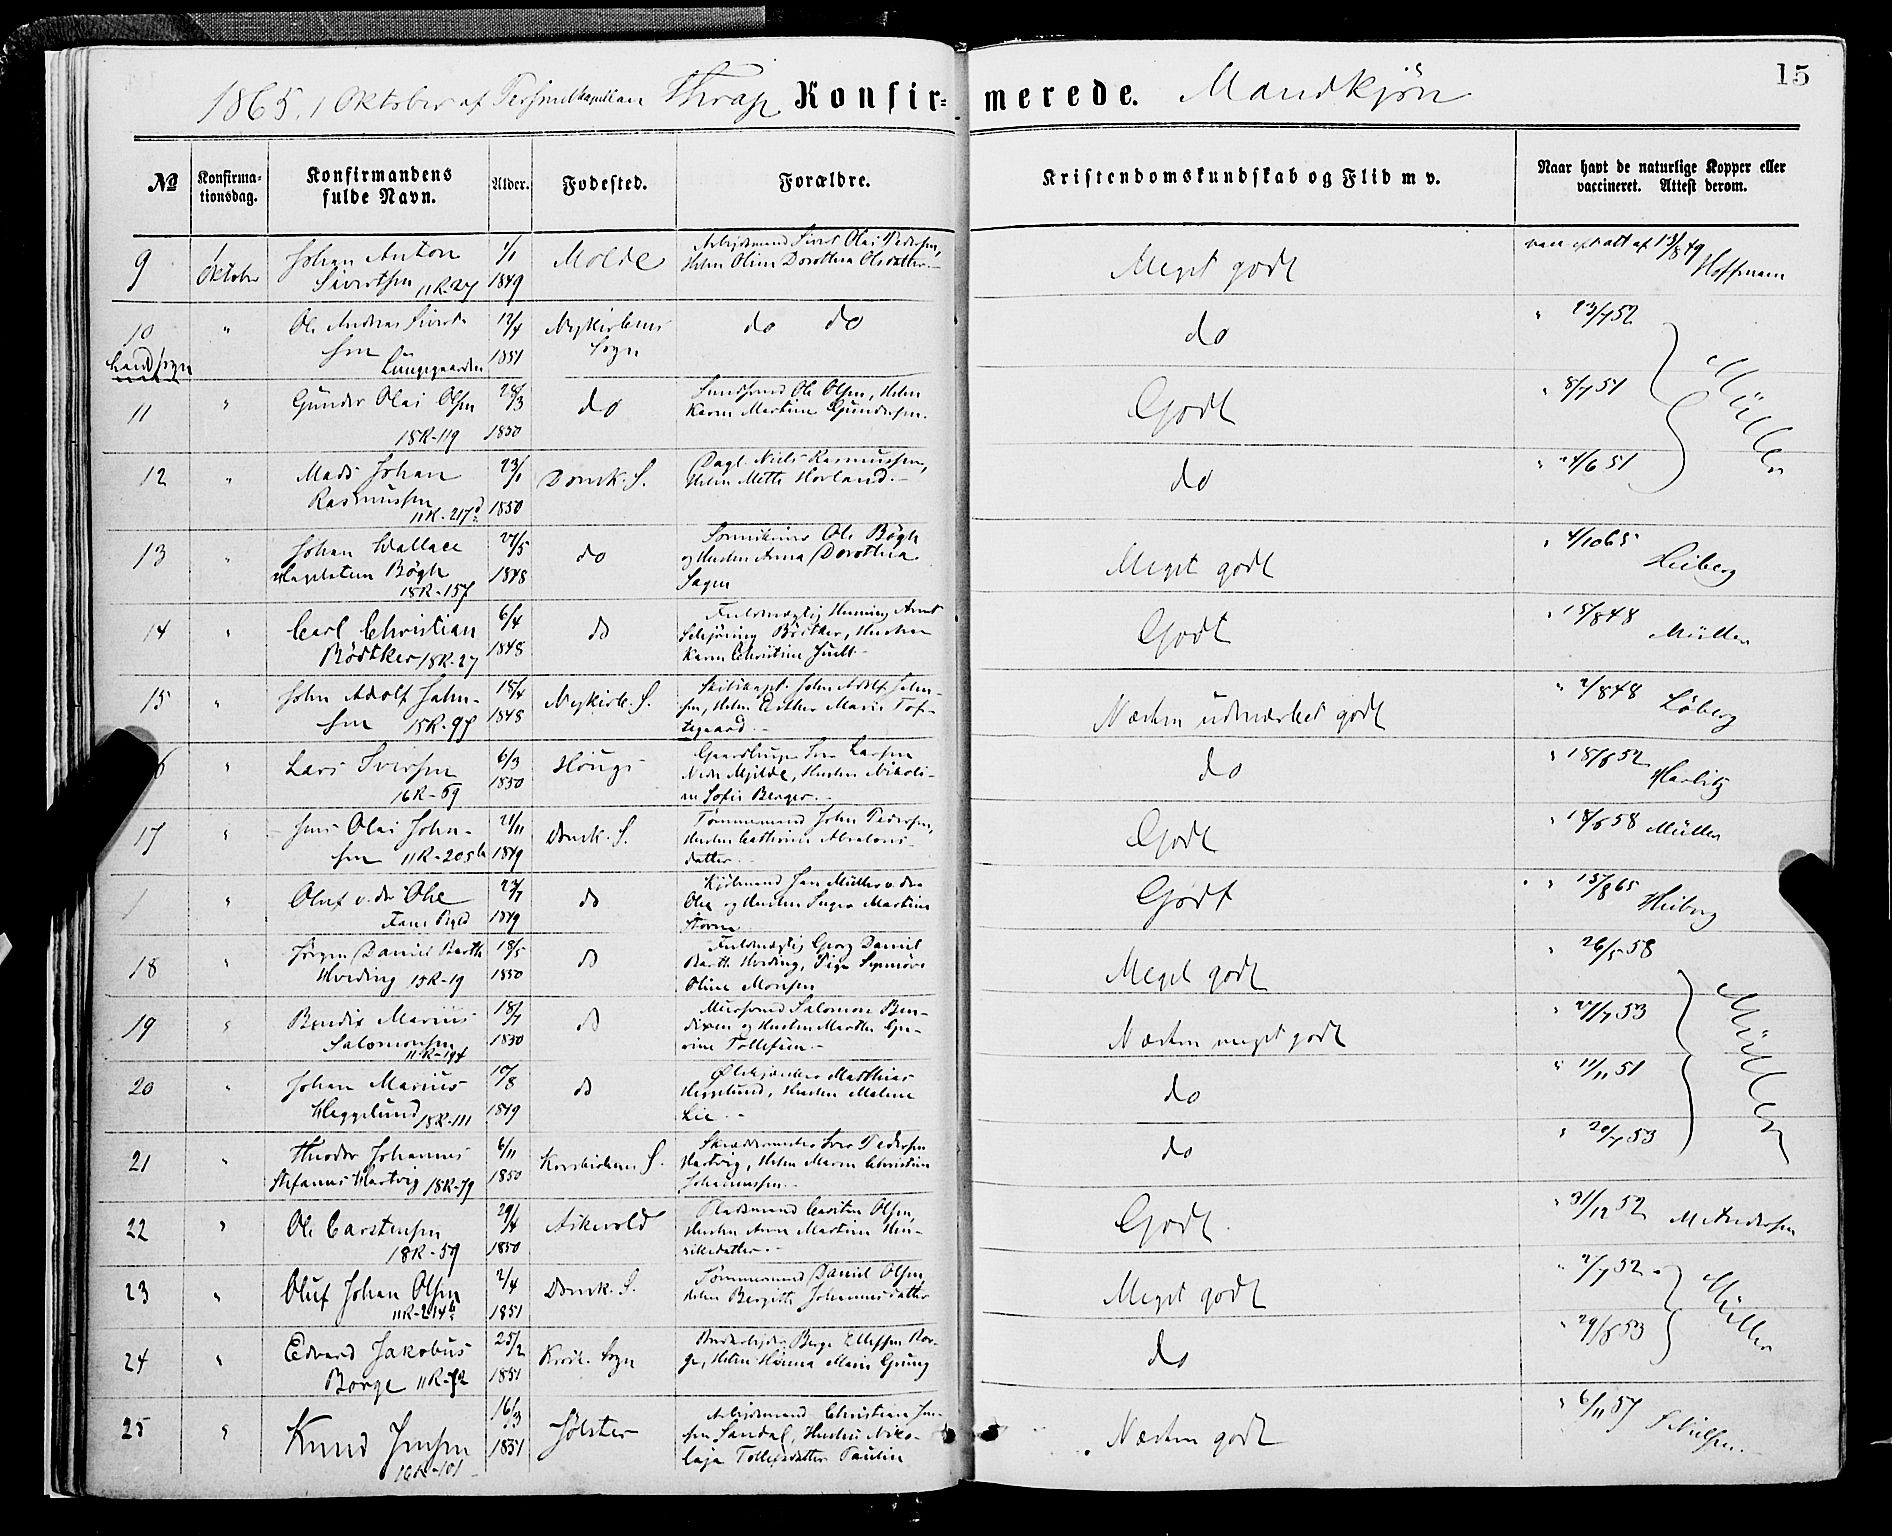 15
1865. 1 Oktober af Personelkapellan Thrap Konfir= merede. Mandkjøn
No Konfirma-tionsdag. Konfirmandens fulde Navn. Alder. Fødested. Forældre. Kristendomskundskab og Flid m v. Naar havt de naturlige Kopper eller vaccineret. Attest derom.
9 1 Oktober Johan Anton Sivertsen 11R-27 1/1 1849 Molde Arbejdsmand Sivert Olai Pedersen, Olina Dorothea Olsdatter.- Meget godt vacc eft att af 13/8 49 Hoffmann
10 Landsogn " Ole Andreas Sivertsen Lungegaarden 12/4 1851 Nykirkens Sogn do do do " 23/7 52
11 " Gunder Olai Olsen 18R-119 28/3 1850 do Ole Olsen, Karen Martine Gundersen. Godt " 8/7 51 Müller
12 " Mads Johan Rasmussen 11R-217d 23/1 1850 Domk. S. Dagl. Niels Rasmussen, Mette Hovland.- do " 24/6 51
13 " Johan Wallace Hagelsteen Bøgh 18R-157 27/5 1848 do Ole Bøgh og Hustru Anna Dorothea Sagen Meget godt " 4/10 65 Heiberg
14 " Carl Christian Bødtker 18R-27 6/4 1848 do Fuldmægtig Henning Arnt Schjøning Bødtker, Hustru Karen Christine Juell- Godt " 15/8 48 Müller
15 " John Adolf Jahnsen 18R-97 18/4 1848 Nykirk. S. Skibskapt. John Adolf Jahnsen, Esther Marie Toftegaard.- Næsten udmærket godt " 2/8 48 Løberg
6 " Lars Iversen 16R-69 6/3 1850 Houg Iver Larsen Nedre Mjelde, Hustru Nikoline Sofie Berger.- do " 18/6 52 Harbitz
17 " Jens Olai Johnsen 11R-205b 21/11 1849 Domk. S. Tømmermand John Pedersen, Hustru Cathrine Absalonsdatter.- Godt " 18/6 58 Müller
1 " Oluf v. der Ohe 23/7 1849 do Jan Müller v. der Ohe og Hustru Inger Martine Godt " 15/8 65 Heiberg
18 " Jørgen Daniel Barth Hveding 18R-19 18/5 1850 do Fuldmægtig Georg Daniel Barth Hveding, Pige Synnøve Oline Monsen Meget godt " 26/5 58
19 " Bendix Marius Salomonsen 11R-194 18/7 1850 do Murersvend Salomon Bendixen og Hustru Marthe Gurine Tollefsen.- Næsten meget godt " 27/7 53 Müller
20 " Johan Marius Heggelund 18R-111 10/8 1849 do Matthias Heggelund, Hustru Malene Lie.- do " 11/11 51
21 " Theodor Johannes Stefanus Hartvig 18R-79 6/11 1850 Korskirkens S. Skræddermester Iver Pedersen Hartvig, Maren Christine Johannessen.- do " 20/7 53
22 " Ole Carstensen 18R-59 29/4 1850 Askevold Pladsmand Carsten Olsen, Hustru Anne Martine Henriksdatter.- Godt " 31/12 52 M Andersen
23 " Oluf Johan Olsen 11R-214b 2/4 1851 Domk. S. Tømmermand Daniel Olsen Bergitte Johannesdatter Meget godt " 2/7 52 Müller
24 " Edvard Jakobus Borge 11R-72 25/2 1851 Krsk. Sogn Berge Ellefsen Borge, Hanna Marie Grung do " 29/6 53
25 " Knud Jensen 16R-101 16/3 1851 Jølster Arbejdsmand Christian Jensen Sandal, Hustru Nikolaja Tollefsdatter Paulin Næsten godt " 6/11 57